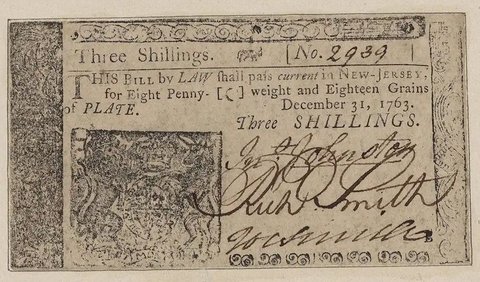 Three Shillings. No. 2939
THIS BILL by LAW shall pass current in NEW-JERSEY,
for Eight Penny- [C] weight and Eighteen Grains
of PLATE. December 31, 1763.
Three SHILLINGS.
Jno. Johnston
Richd. Smith